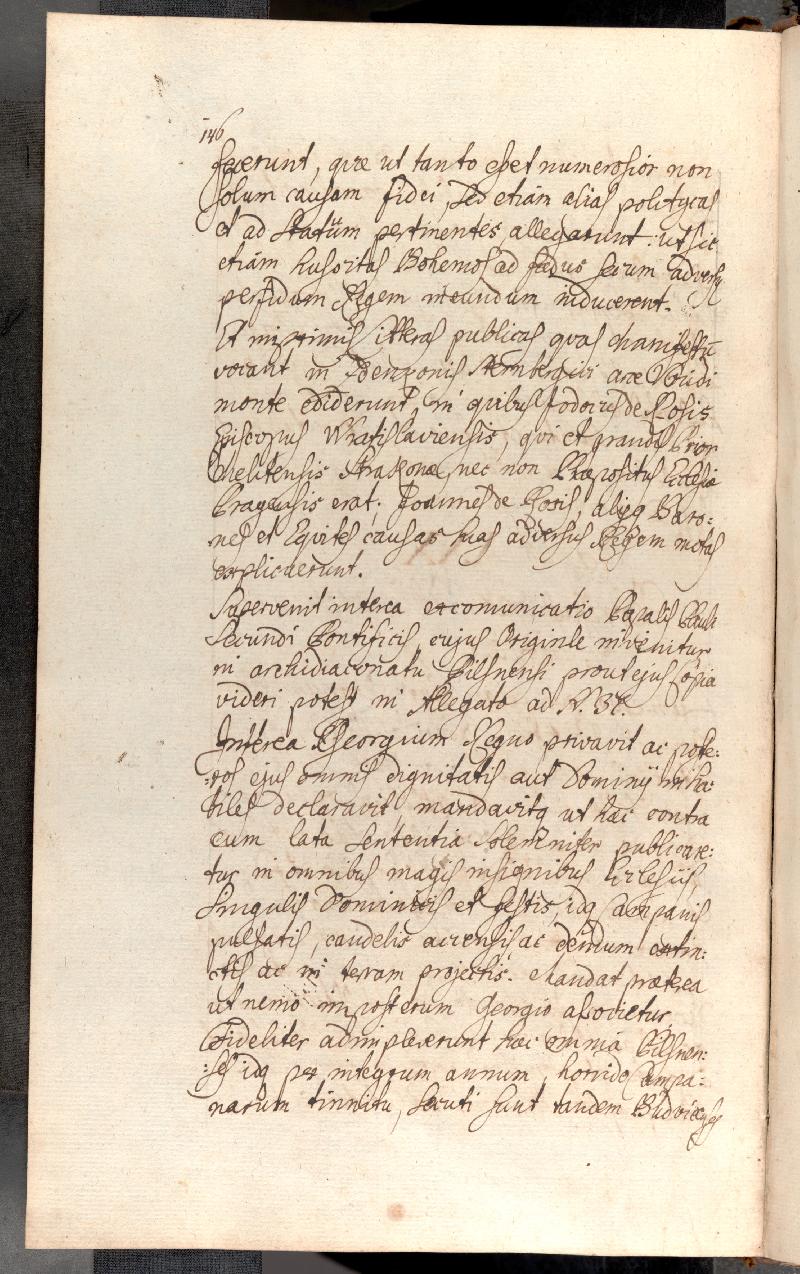 146
fecerunt, quæ ut tanto esset numerosior non
solum causam fidei, sed etiam alias politycas
et ad Statüm pertinentes allegarunt: ut sic
etiam hussitas Bohemos ad fædus secum adversus
perfidum Regem ineundum inducerent.
Et inprimis litteras publicas quas Manifestū
vocant in Zdenkonis Sternbergici arce Viridi
monte ediderunt, in quibus Jodocus de Rosis
Episcopus Wratislaviensis, qui et grandis Prior
Melitensis Strakonæ, nec non Præpositus Ecclesiæ
Pragensis erat; Joannes de Rosis, alijq Baro:
nes et Equites causas suas adversus Regem motas
explicuerunt.
Supervenit interea excomunicatio Papalis Pauli
Secundi Pontificis, cujus Originle invenitur
in archidiaconatu Pilsnensi prout ejus Copia
videri potest in Allegato ad N. 37.
Interea Georgium Regno privavit ac poste:
:ros ejus omnis dignitatis aut Dominij inha:
biles declaravit, mandavitq ut hac contra
eum lata sententia solemniter publicare:
tur in omnibus magis insignibus Ecclesiis,
Singulis Dominicis et festis, idq Campanis
pulsatis, candelis accensis, ac demum extin:
ctis ac in terram projectis. Mandat præterea
ut nemo imposterum Georgio associetur
Fideliter adimpleverunt hæc omnia Pilsnen:
:ses idq per integrum annum, horrido Campa:
narum tinnitu, secuti sunt tandem Budvicenses